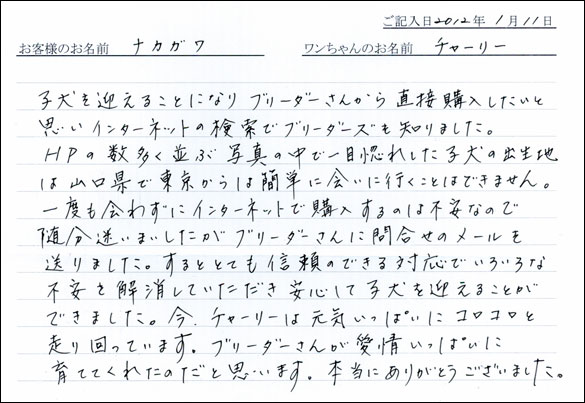 ご記入日2012年 1月11日
お客様のお名前 ナカガワ ワンちゃんのお名前 チャーリー
子犬を迎えることになり ブリーダーさんから直接購入したいと
思いインターネットの検索でブリーダーズも知りました。
HPの数多く並ぶ写真の中で一目惚れした子犬の出生地
は山口県で東京からは簡単に会いに行くことはできません。
一度も会わずにインターネットで購入するのは不安なので
随分迷いまいしたがブリーダーさんに問合せのメールを
送りました。するととても信頼のできる対応でいろいろな
不安を解消していただき安心して子犬を迎えることが
できました。今、チャーリーは元気いっぱいにコロコロと
走り回っています。ブリーダーさんが愛情いっぱいに
育ててくれたのだと思います。本当にありがとうございました。